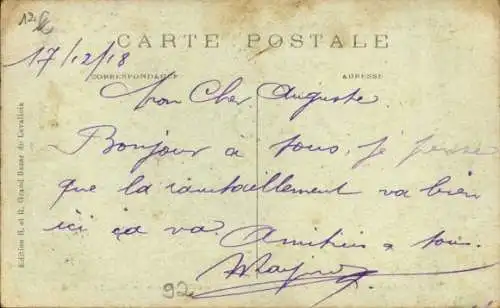 12
CARTE POSTALE
17/12/18
CORRESPONDANCE
ADRESSE
Mon Cher Auguste.
Bonjour à tous, je pense
que la ravitaillement va bien
ici ça va. Amitiés a tous.
92
Edition H. et R. Grand Bazar de Levallois